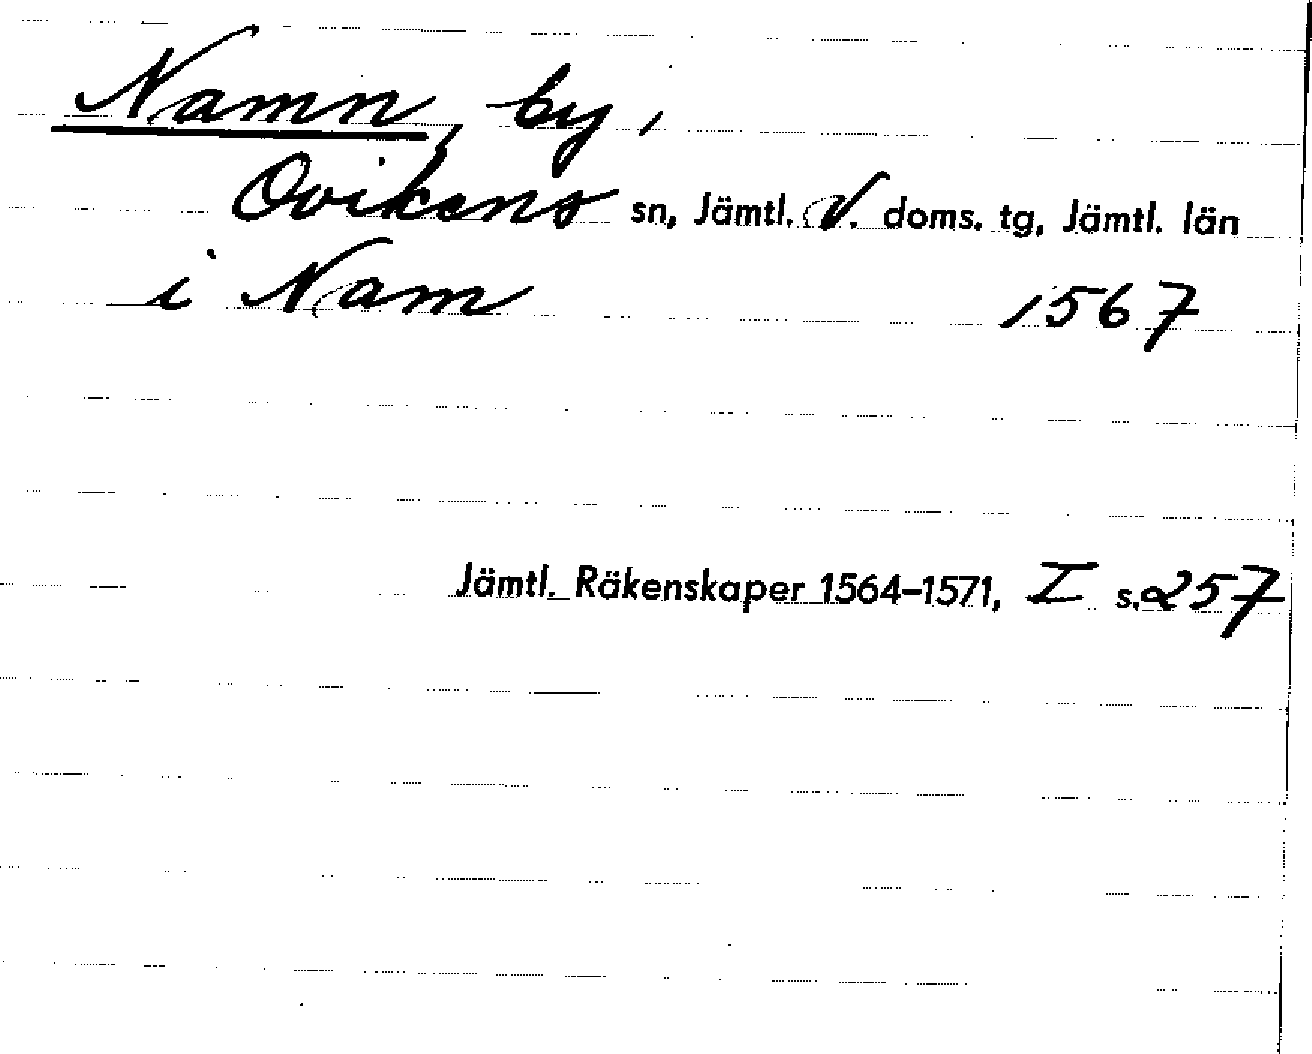 Namn, by,
Ovikens sn, Jämtl. V. doms. tg, Jämtl. län
i Nam 1567
Jämtl. Räkenskaper 1564–1571, I s. 257